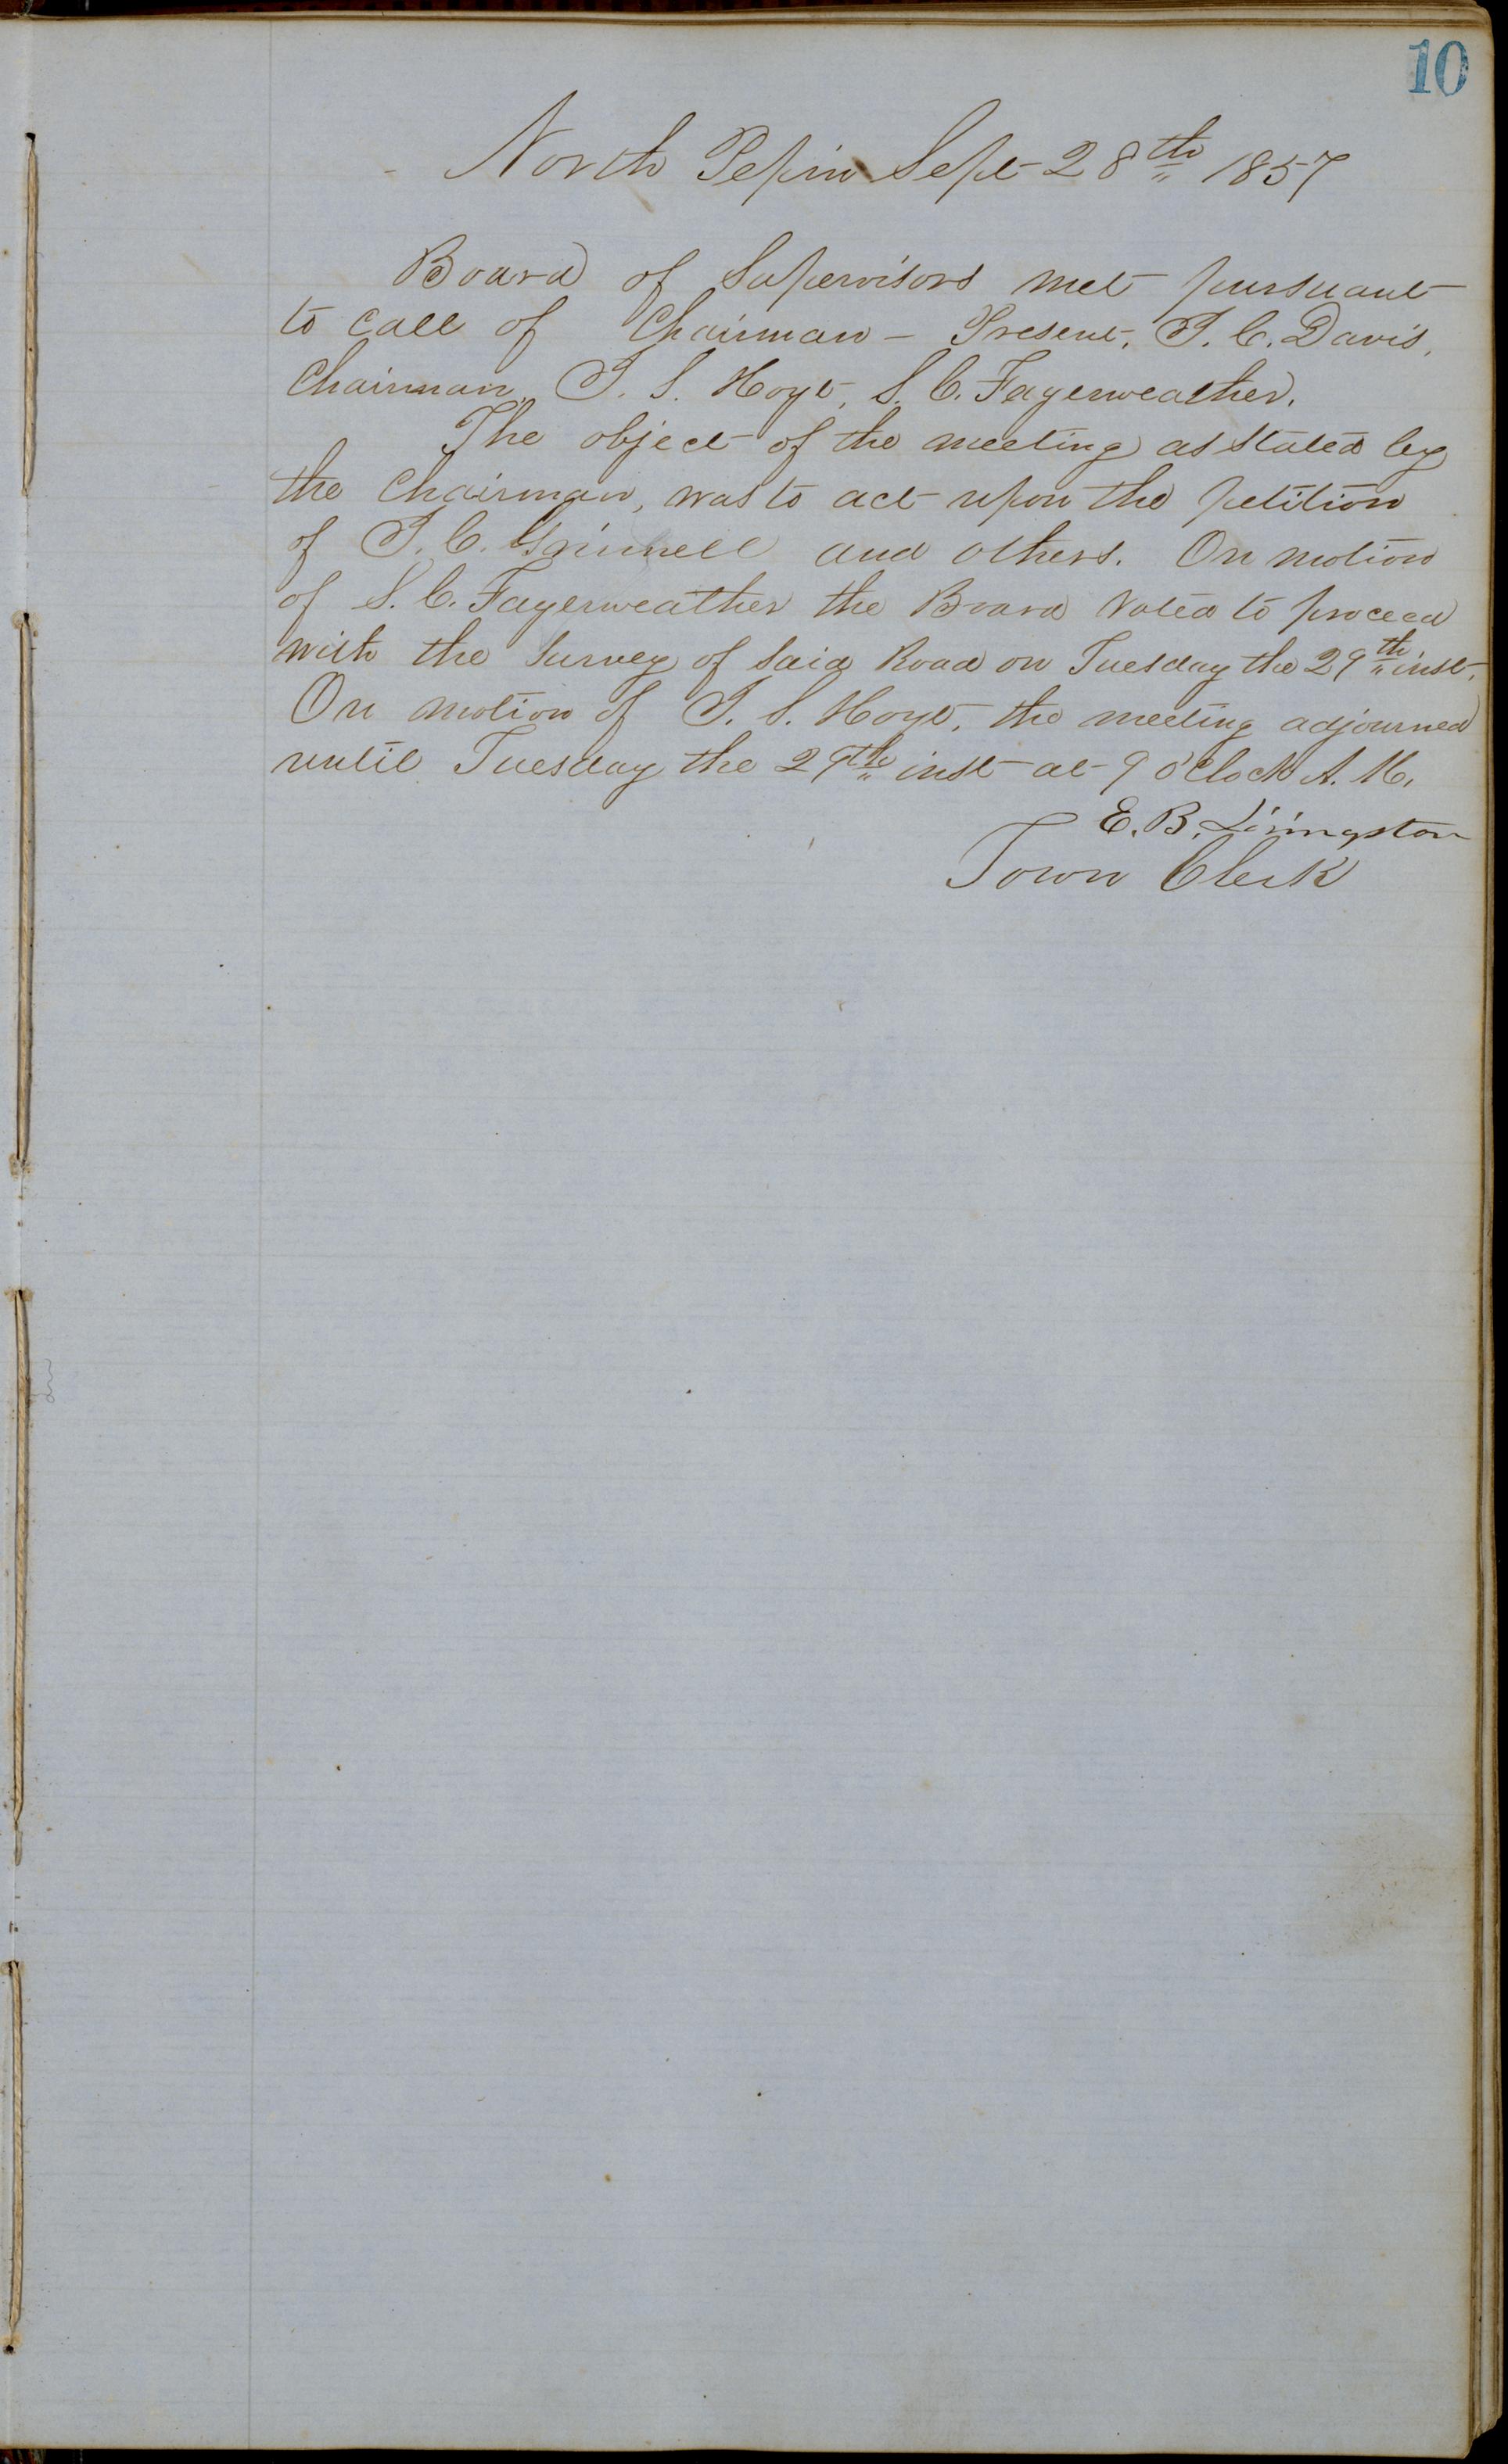 10
North Pepin Sept 28th 1857
Board of Supervisors met pursuant
to call of Chairman – Present, T. C. Davis,
Chairman, T. S. Hoyt, S. C. Fayerweather.
The object of the meeting as stated by
the Chairman, was to act upon the petition
of T. C. Grinnell and others. On motion
of S. C. Fayerweather the Board voted to proceed
with the Survey of said Road on Tuesday the 29th inst.
On motion of T. S. Hoyt, the meeting adjourned
until Tuesday the 29th inst at 9 o'clock A. M.
E. B. Livingston
Town Clerk